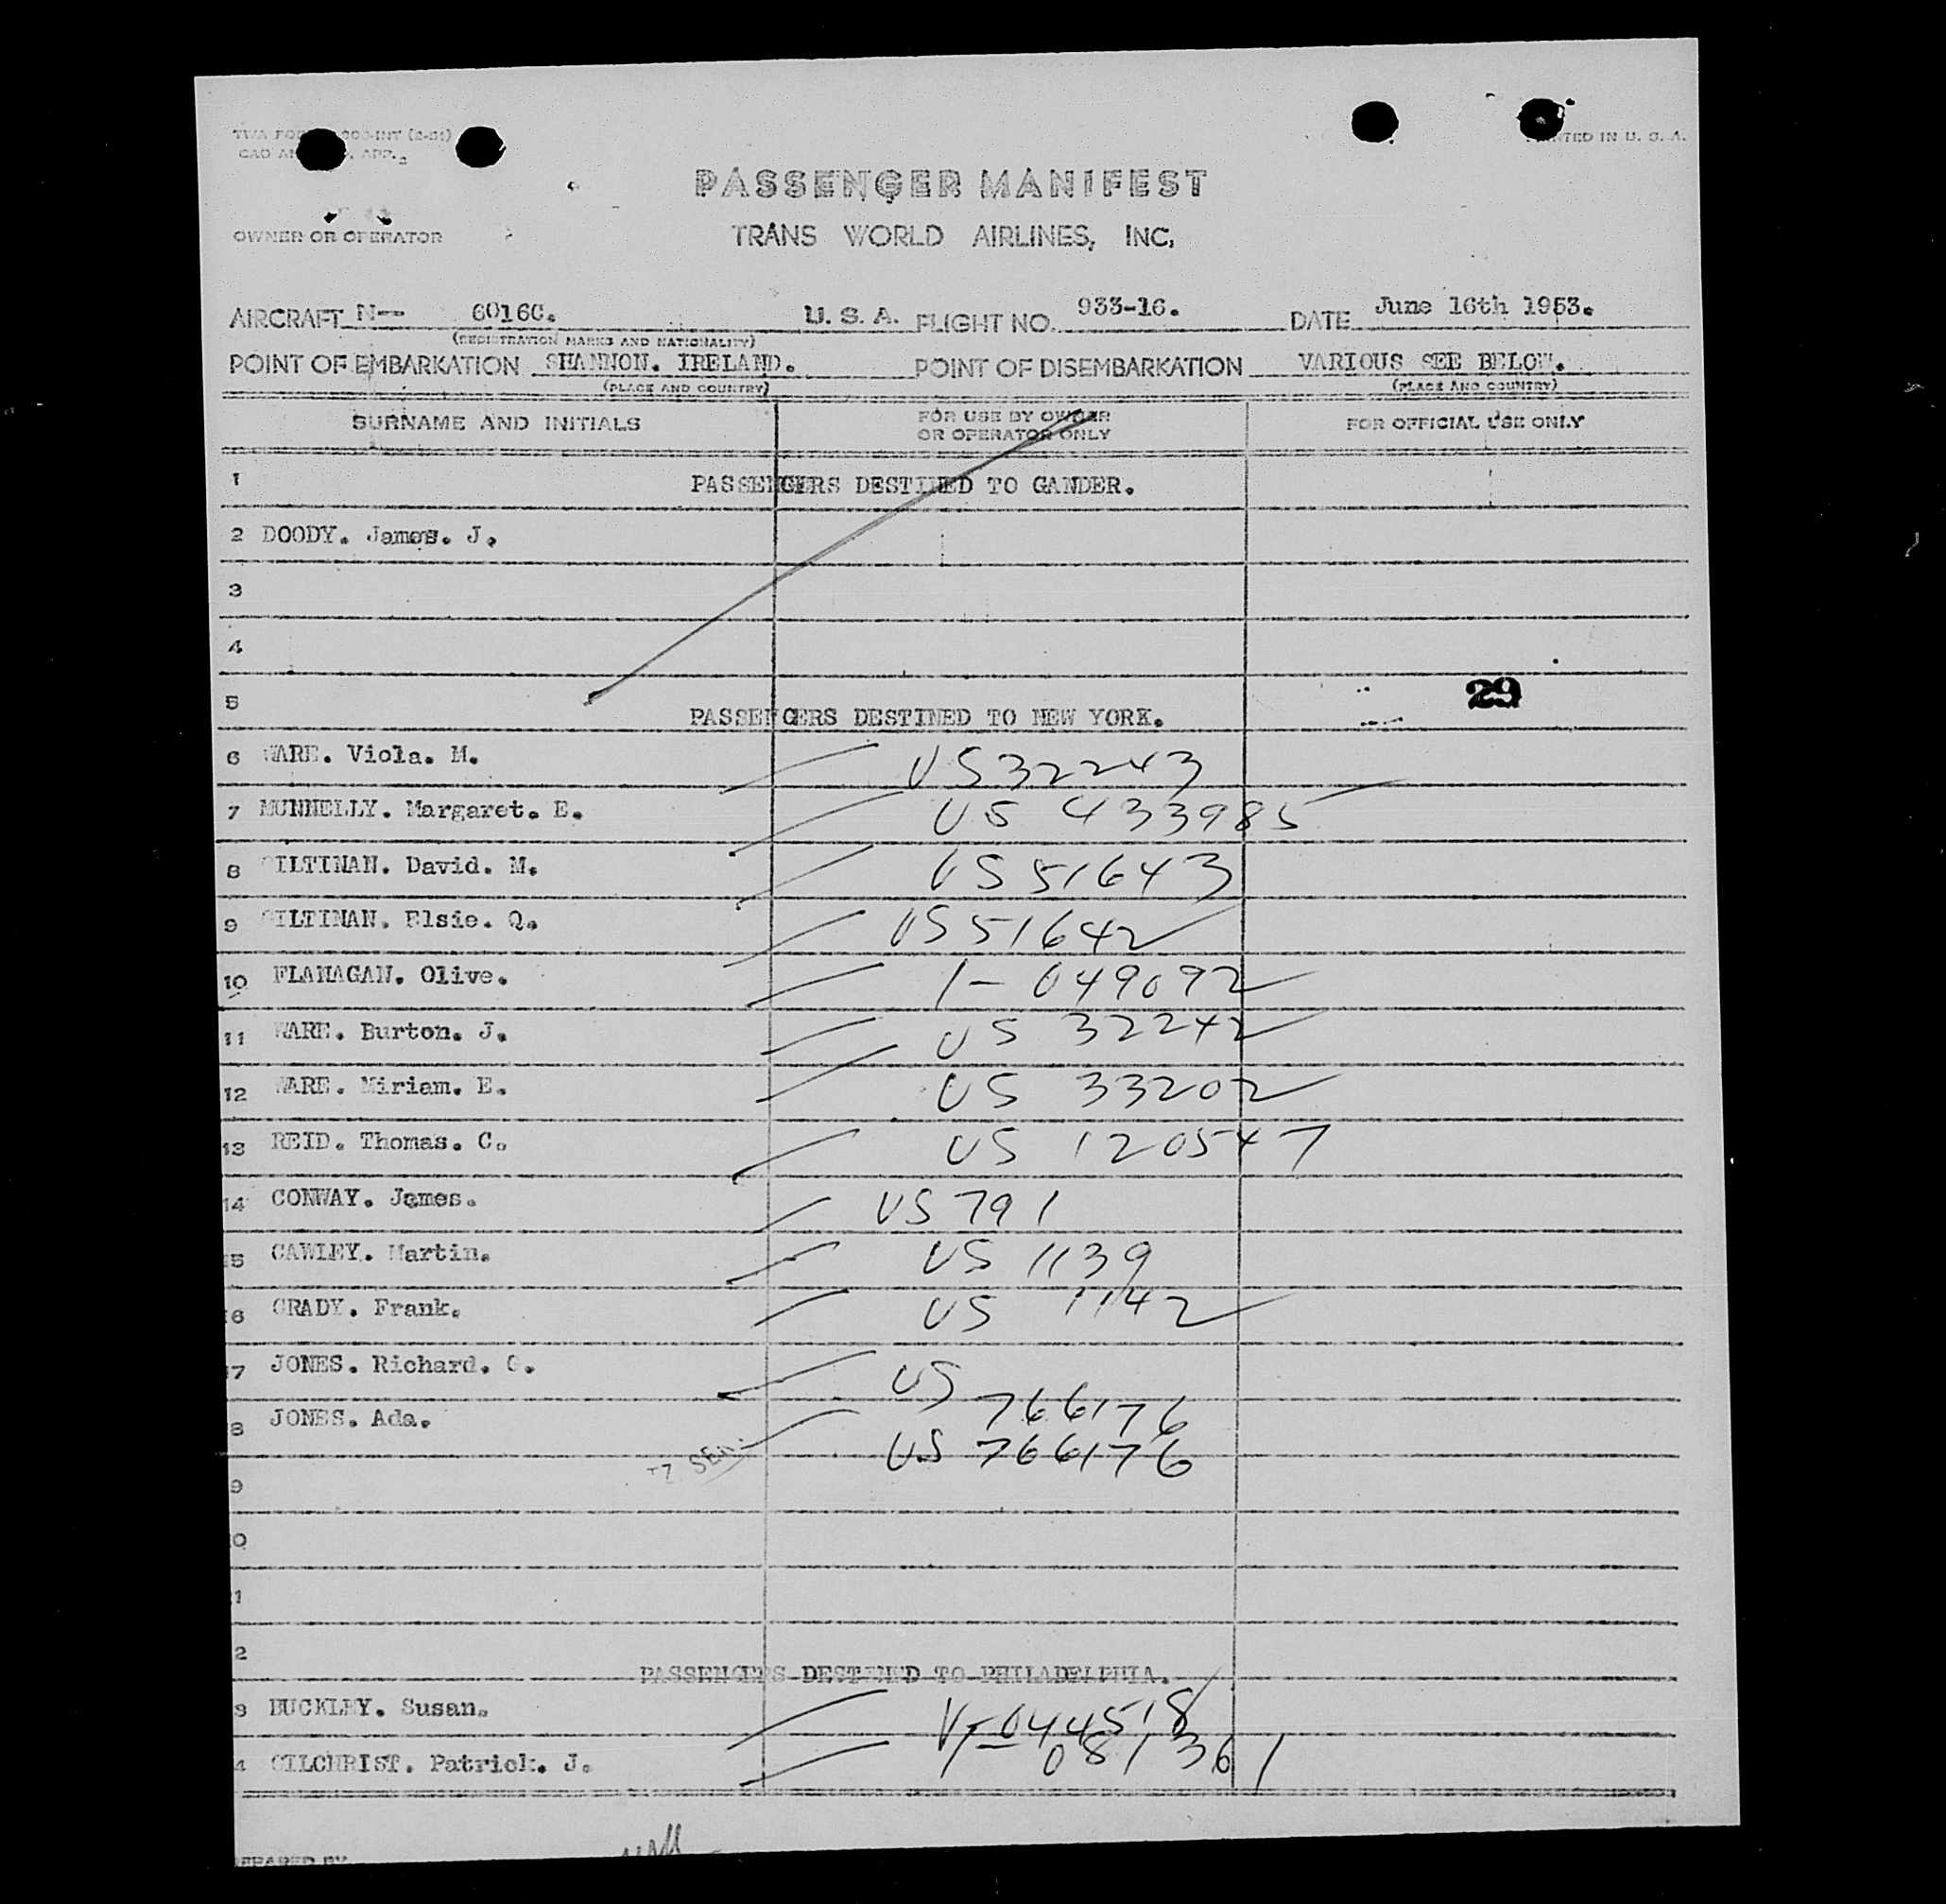 PRINTED IN U. S. A.
PASSENGER MANIFEST
OWNER OR OPERATOR TRANS WORLD AIRLINES, INC.
AIRCRAFT N-- 6016C. U. S. A. FLIGHT NO. 933-16. DATE June 16th 1953.
(REGISTRATION MARKS AND NATIONALITY)
POINT OF EMBARKATION SHANNON. IRELAND. POINT OF DISEMBARKATION VARIOUS SEE BELOW.
(PLACE AND COUNTRY) (PLACE AND COUNTRY)
SURNAME AND INITIALS FOR USE BY OWNER OR OPERATOR ONLY FOR OFFICIAL USE ONLY
1 PASSENGERS DESTINED TO GANDER.
2 DOODY. James. J.
3
4
5 29
PASSENGERS DESTINED TO NEW YORK.
6 WARE. Viola. M. US 32243
7 MUNNELLY. Margaret. E. US 433985
8 GILTINAN. David. M. US 51643
9 GILTINAN. Elsie. Q. US 51642
10 FLANAGAN. Olive. 1-049092
11 WARE. Burton. J. US 32242
12 WARE. Miriam. E. US 33202
13 REID. Thomas. C. US 120547
14 CONWAY. James. US 791
15 CAWLEY. Martin. US 1139
16 GRADY. Frank. US 1142
17 JONES. Richard. G. US 766176
8 JONES. Ada. US 766176
9
0
1
2
PASSENGERS DESTINED TO PHILADELPHIA.
3 BUCKLEY. Susan. V-044518
4 GILCHRIST. Patrick. J. 1-081361